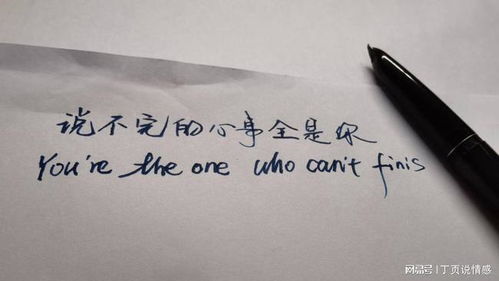 说不完的心事全是你
You're the one who can't finis
网易号 | 丁页说情感